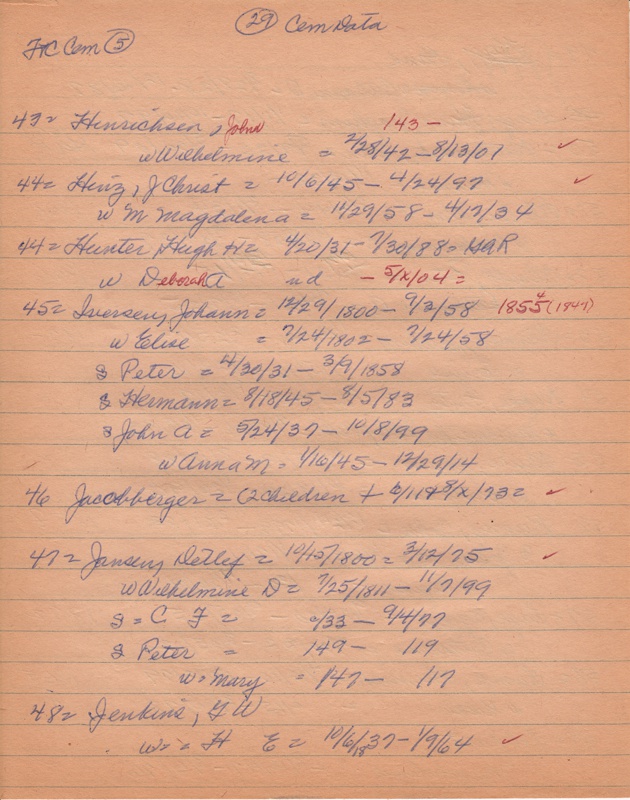 29 Cem Data
FtC Cem 5
43= Henrichsen, John 143 -
w Wilhelmine = 2/28/42 - 8/13/01 ✓
44= Hinz, J Christ = 10/6/45 - 4/24/97 ✓
w M Magdalena = 11/29/58 - 4/17/34
44= Hunter, Hugh H= 4/20/31 - 7/30/88=
w Deborah A nd - 5/x/04=
45= Iversen, Johann= 12/29/1800 - 9/3/58 (1847)
w Elise = 7/24/1802 - 7/24/58
s Peter = 4/30/31 - 3/9/1858
s Hermann= 8/18/45 - 8/5/83
s John A = 5/24/37 - 10/8/99
w Anna M = 1/16/45 - 12/29/14
46 Jacobberger = (2 children + 8/x/73= ✓
47= Jansen, Detlef = 10/15/1800= 3/12/75 ✓
w Wilhelmine D= 7/25/1811 - 11/7/99
s = C F = /33 - 9/4/77
s Peter = 149 - 119
w= Mary = 147 - 117
48= Jenkins, F W
w= = H E = 10/6/37 - 1/9/64 ✓